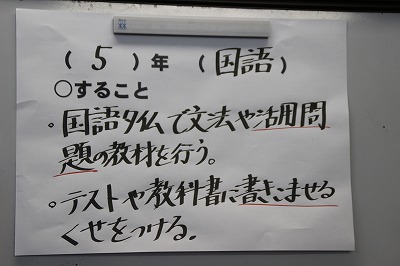 (5)年 (国語)
○すること
。国語タイムで文法や活用問
題の教材を行う。
。テストや教科書に書きこませる
くせをつける。